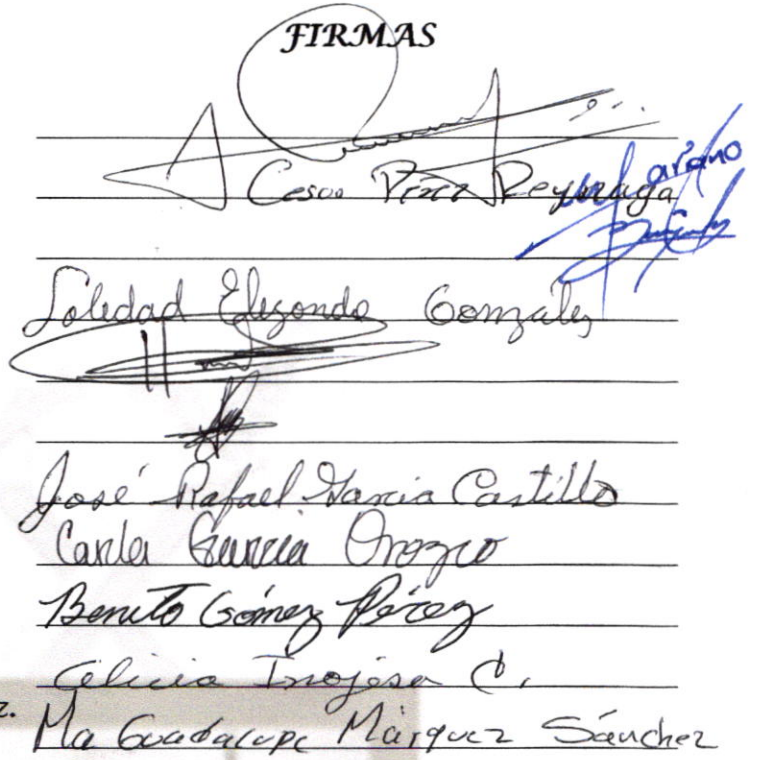 FIRMAS
Cesar Pérez Reynaga
Mariano
Soledad Elizondo Gonzalez
José Rafael Garcia Castillo
Carla Garcia Orozco
Benito Gómez Pérez
Celicia Inojosa C.
z. Ma Guadalupe Márquez Sánchez